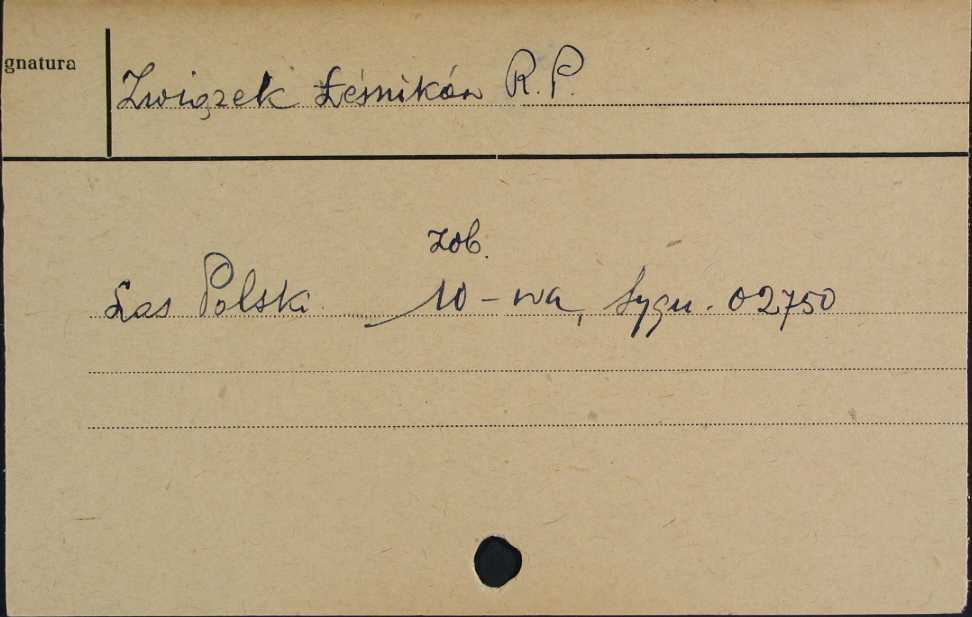 gnatura
Związek Leśników R. P.
zob.
Las Polski 10-wa, Sygn. 02750